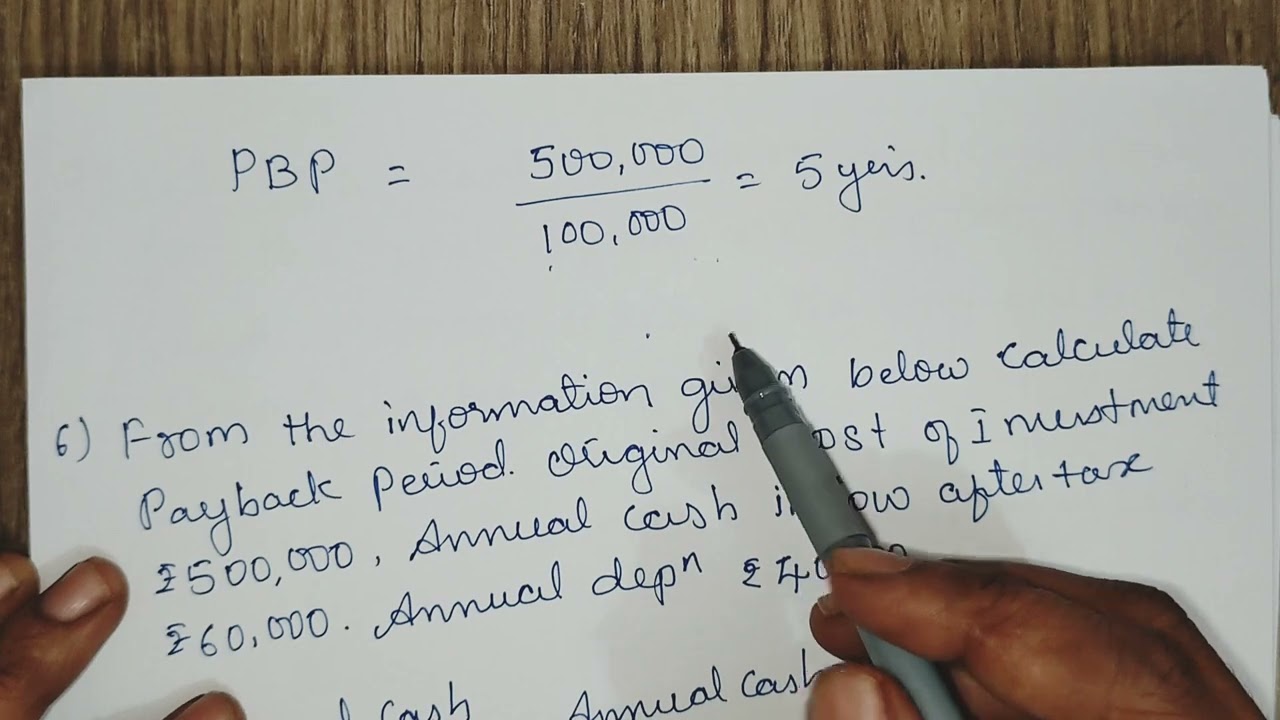 PBP = 500,000 / 100,000 = 5 yeis.
6) From the information given below calculate
Payback Period. Original Cost of Investment
₹500,000, Annual cash inflow after tax
₹60,000. Annual depⁿ ₹40
cash Annual cash